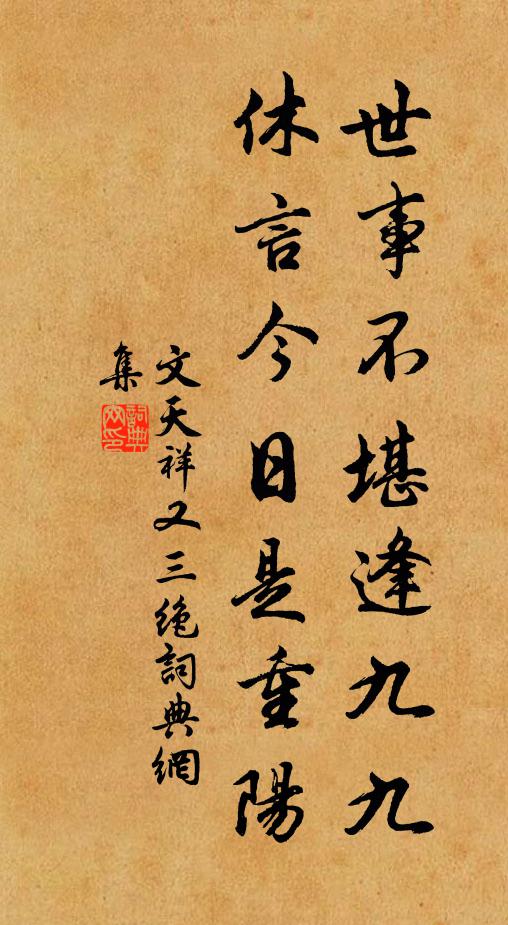 世事不堪逢九九
休言今日是重陽
文天祥又三絶詞典網
集
詞典
网印